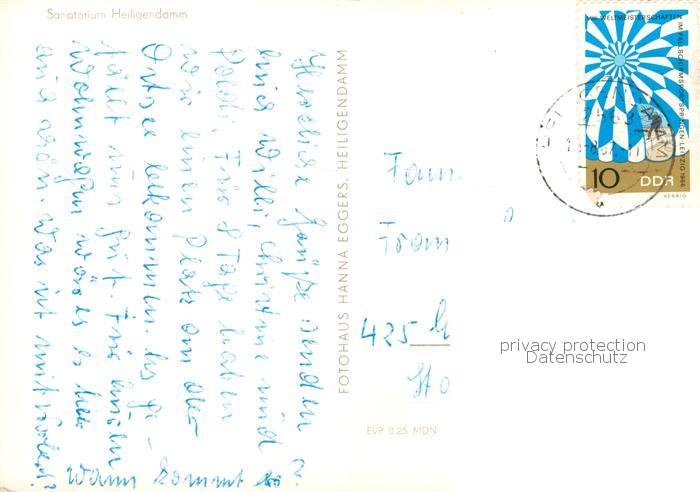 Sanatorium Heiligendamm
Herzliche Grüße senden
euch Willi, Christine und
Poldi. Für 8 Tage haben
wir einen Platz an der
Ostsee bekommen. Es ge-
fällt uns gut. Für einen
Wohnwagen wäre es hier
auch schön. Was ist mit
Wann kommt
FOTOHAUS HANNA EGGERS, HEILIGENDAMM
EVP 0.25 MDN
Fam.
425
VIII. WELTMEISTERSCHAFTEN IM FALLSCHIRMSPORTSPRINGEN · LEIPZIG 1966
10 DDR
HENNIG
privacy protection
Datenschutz